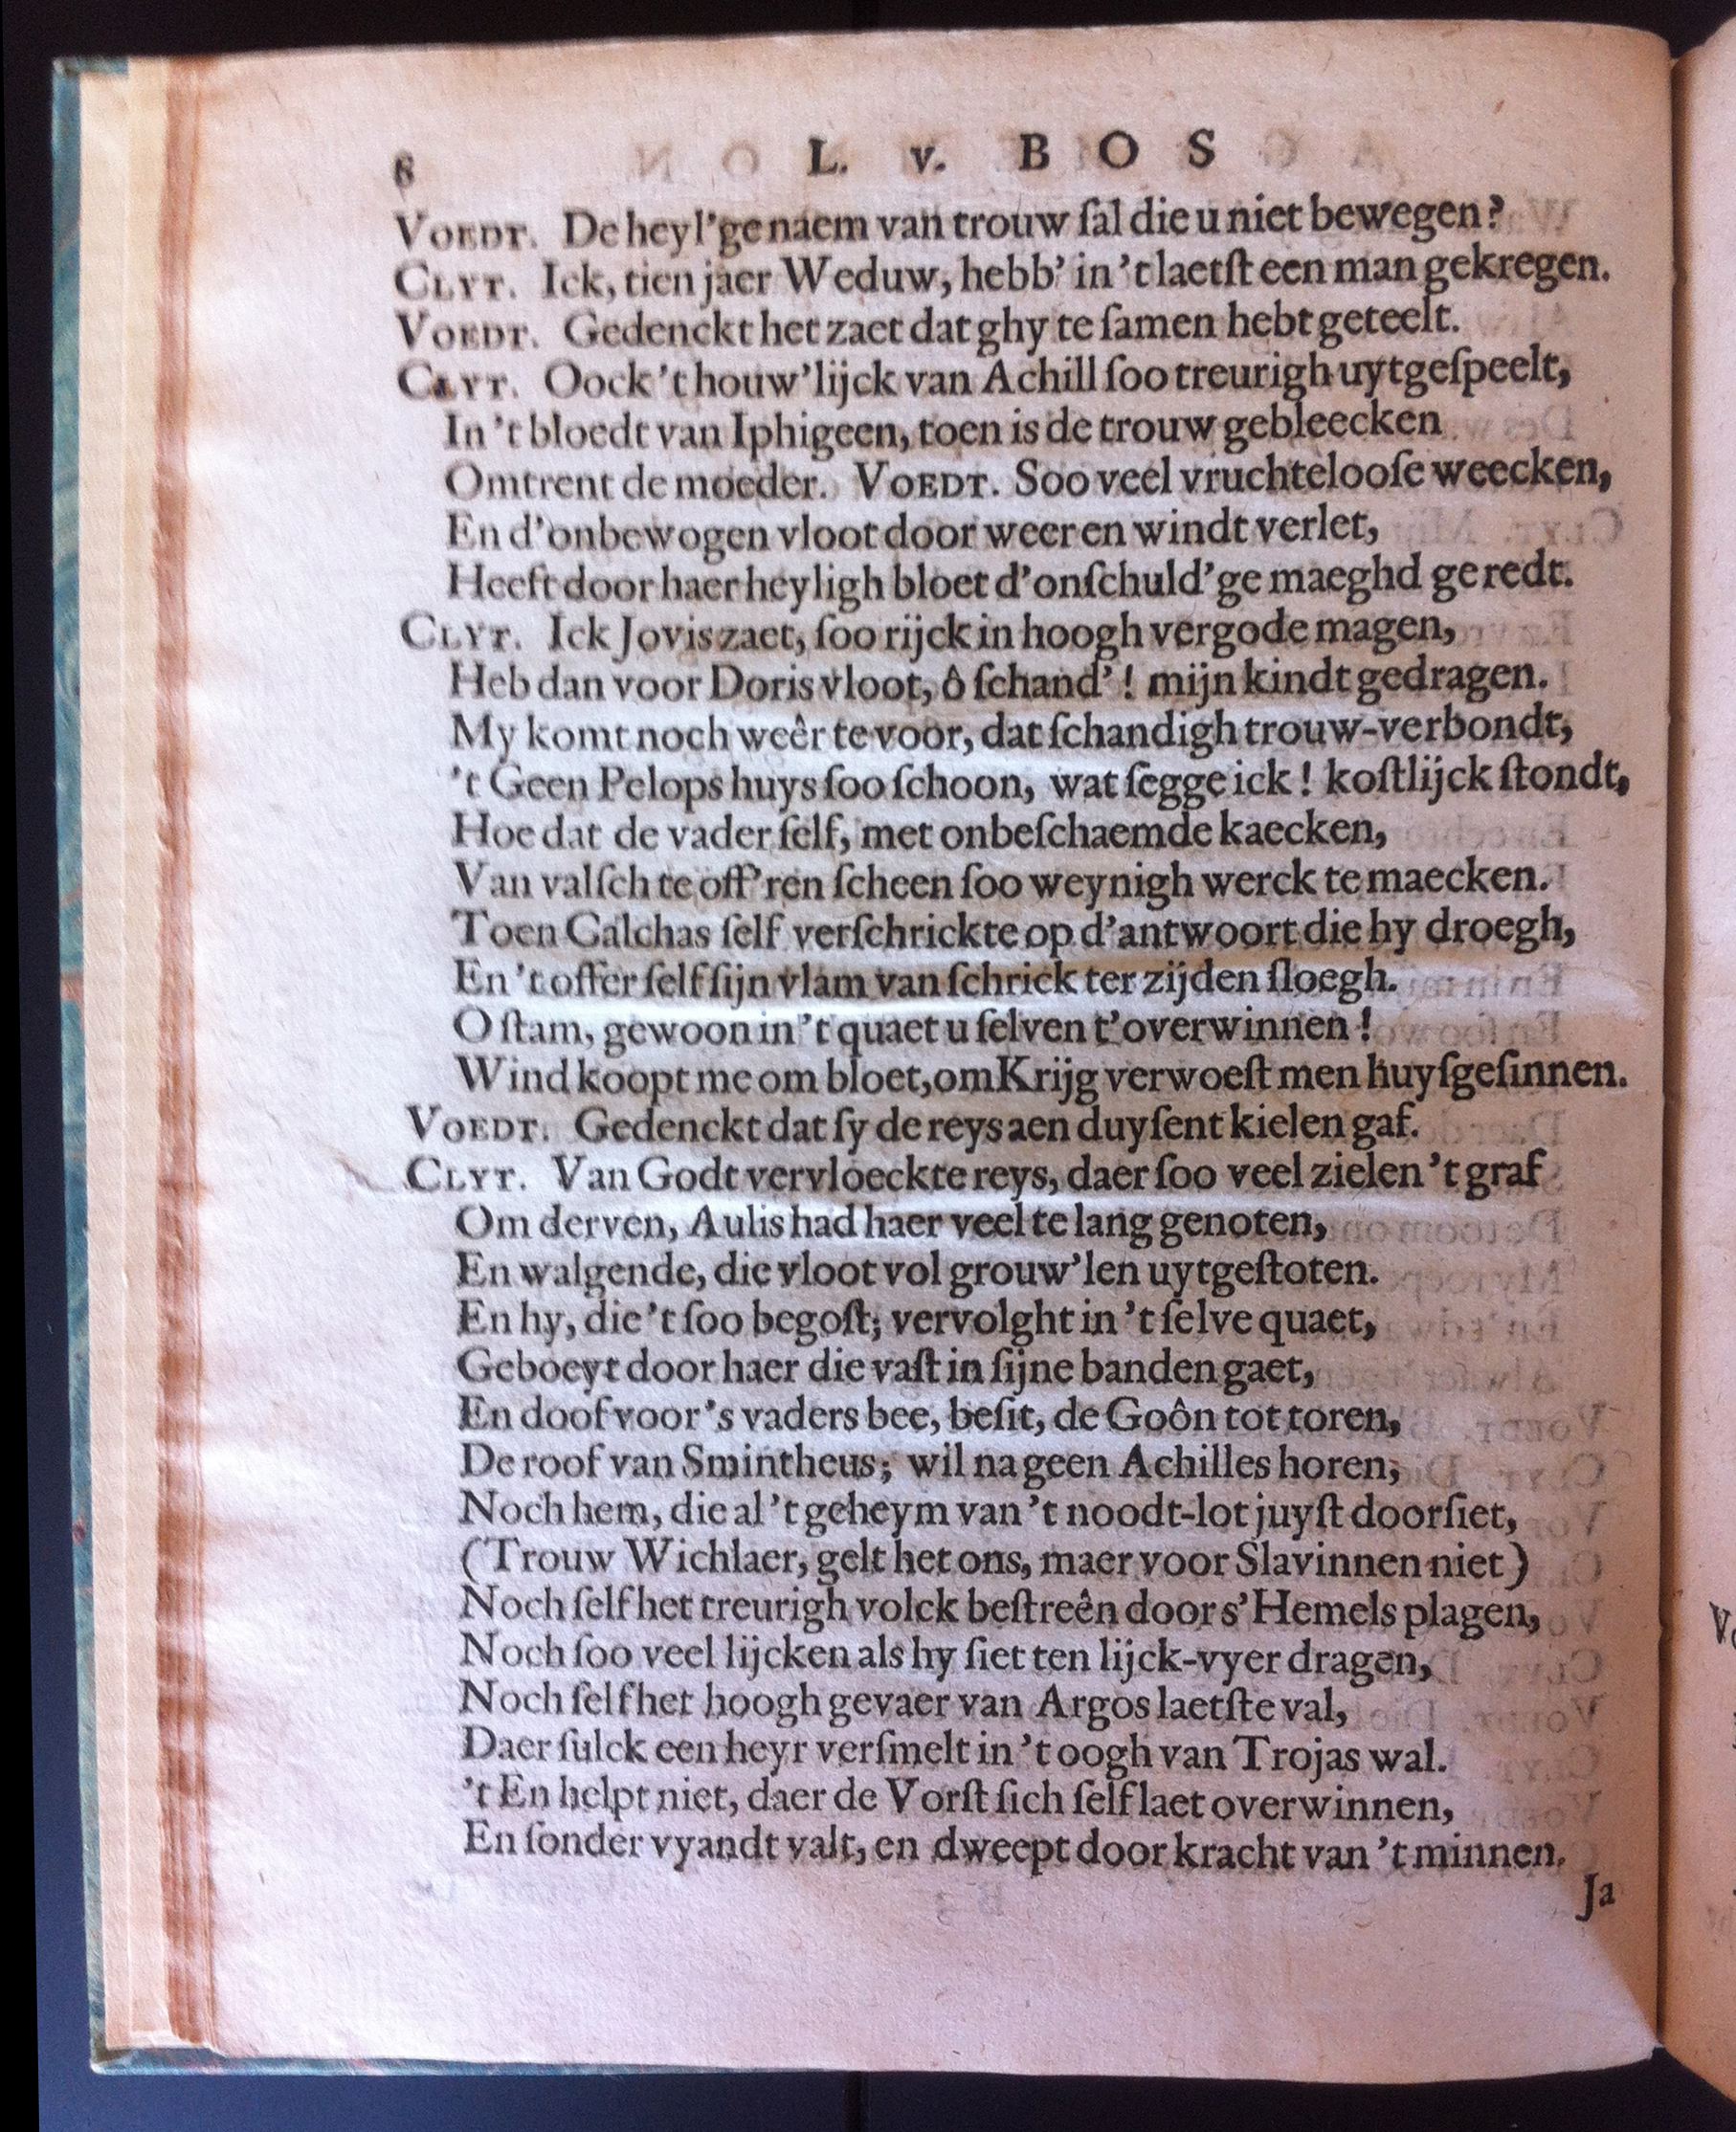 8 L. v. BOS
VOEDT. De heyl'ge naem van trouw ſal die u niet bewegen?
CLYT. Ick, tien jaer Weduw, hebb' in 't laetſt een man gekregen.
VOEDT. Gedenckt het zaet dat ghy te ſamen hebt geteelt.
CLYT. Oock 't houw'lijck van Achill ſoo treurigh uytgeſpeelt,
In 't bloedt van Iphigeen, toen is de trouw gebleecken
Omtrent de moeder. VOEDT. Soo veel vruchtelooſe weecken,
En d'onbewogen vloot door weer en windt verlet,
Heeft door haer heyligh bloet d'onſchuld'ge maeghd geredt.
CLYT. Ick Jovis zaet, ſoo rijck in hoogh vergode magen,
Heb dan voor Doris vloot, ô ſchand'! mijn kindt gedragen.
My komt noch weêr te voor, dat ſchandigh trouw-verbondt,
't Geen Pelops huys ſoo ſchoon, wat ſegge ick! koſtlijck ſtondt,
Hoe dat de vader ſelf, met onbeſchaemde kaecken,
Van valſch te off'ren ſcheen ſoo weynigh werck te maecken.
Toen Calchas ſelf verſchrickte op d'antwoort die hy droegh,
En 't offer ſelf ſijn vlam van ſchrick ter zijden ſloegh.
O ſtam, gewoon in 't quaet u ſelven t'overwinnen!
Wind koopt me om bloet, om Krijg verwoeſt men huyſgeſinnen.
VOEDT. Gedenckt dat ſy de reys aen duyſent kielen gaf.
CLYT. Van Godt vervloeckte reys, daer ſoo veel zielen 't graf
Om derven, Aulis had haer veel te lang genoten,
En walgende, die vloot vol grouw'len uytgeſtoten.
En hy, die 't ſoo begoſt; vervolght in 't ſelve quaet,
Geboeyt door haer die vaſt in ſijne banden gaet,
En doof voor 's vaders bee, beſit, de Goôn tot toren,
De roof van Smintheus; wil na geen Achilles horen,
Noch hem, die al 't geheym van 't noodt-lot juyſt doorſiet,
(Trouw Wichlaer, gelt het ons, maer voor Slavinnen niet)
Noch ſelf het treurigh volck beſtreên door s'Hemels plagen,
Noch ſoo veel lijcken als hy ſiet ten lijck-vyer dragen,
Noch ſelf het hoogh gevaer van Argos laetſte val,
Daer ſulck een heyr verſmelt in 't oogh van Trojas wal.
't En helpt niet, daer de Vorſt ſich ſelf laet overwinnen,
En ſonder vyandt valt, en dweept door kracht van 't minnen.
Ja